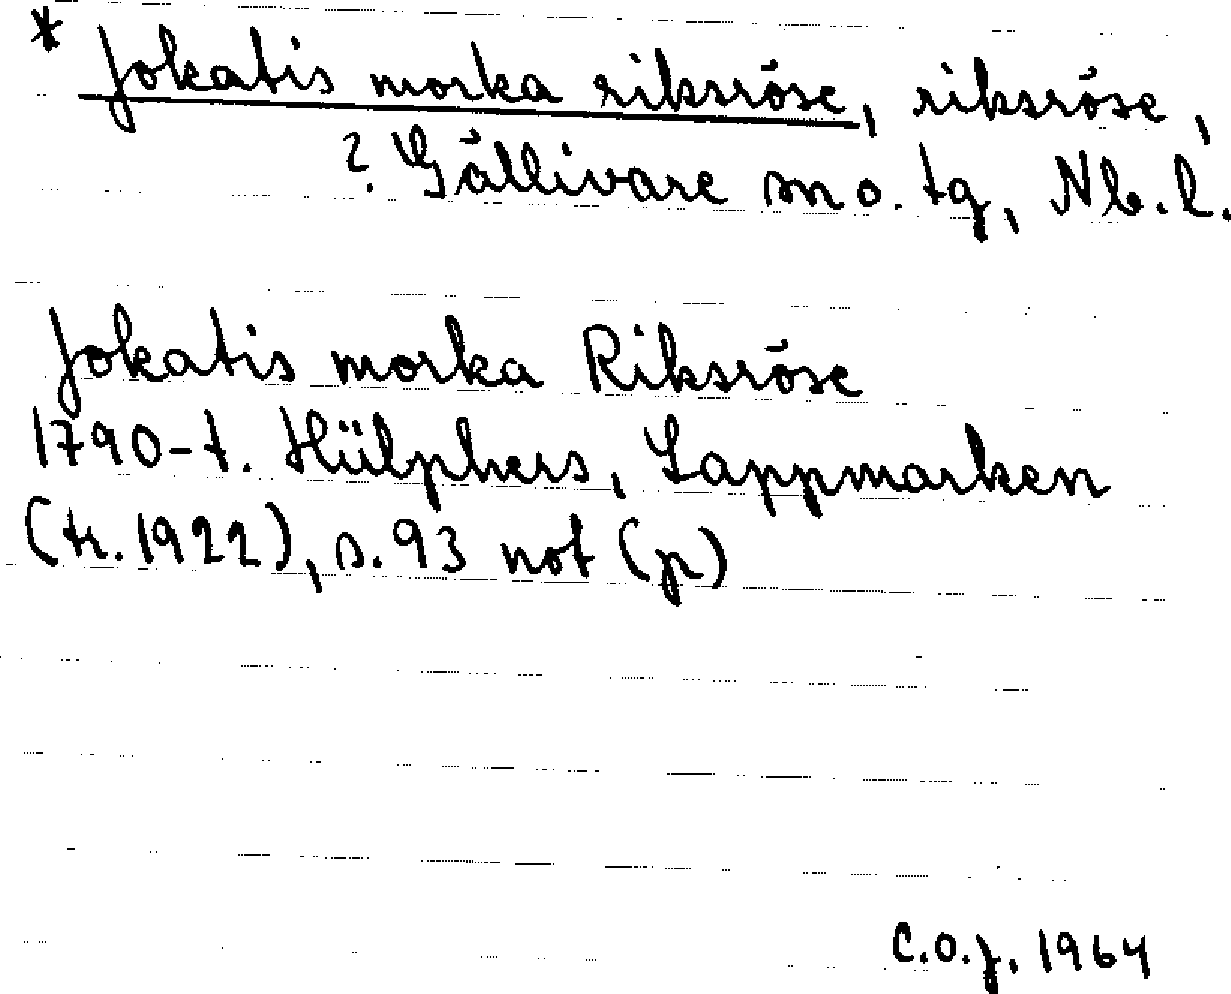 * Jokatis morka riksröse, riksröse,
?. Gällivare sn o. tg, Nb. l.
Jokatis morka Riksröse
1790-t. Hülphers, Lappmarken
(tr. 1922), s. 93 not (p)
C.O.J. 1964